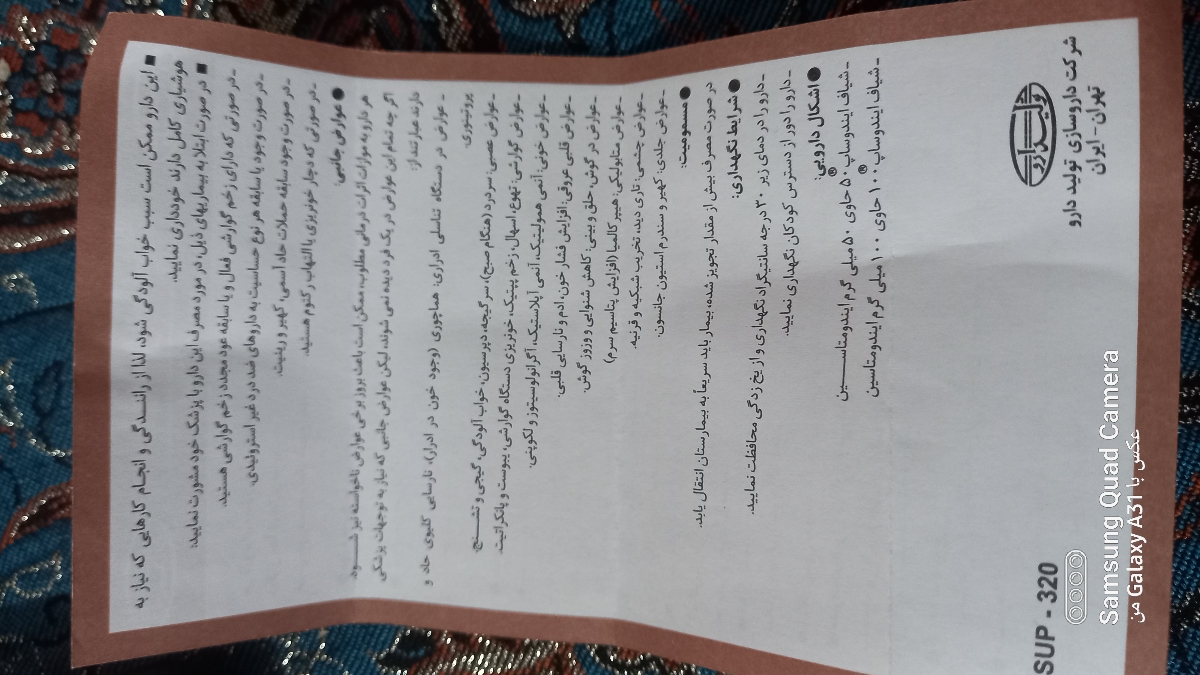 ■ این دارو ممکن است سبب خواب آلودگی شود، لذا از راننــدگی و انجام کارهایی که نیاز به
هوشیاری کامل دارند خودداری نمایید.
■ در صورت ابتلا به بیماریهای ذیل، در مورد مصرف این دارو با پزشک خود مشورت نمایید:
ـ در صورتی که دارای زخم گوارشی فعال و یا سابقه عود مجدد زخم گوارشی هستید.
ـ در صورت وجود یا سابقه هر نوع حساسیت به داروهای ضد درد غیر استروئیدی.
ـ در صورت وجود سابقه حملات حاد آسمی، کهیر و رینیت.
ـ در صورتی که دچار خونریزی یا التهاب رکتوم هستید.
● عوارض جانبی:
هر دارو به موازات اثرات درمانی مطلوب، ممکن است باعث بروز برخی عوارض ناخواسته نیز شــود.
اگر چه تمام این عوارض در یک فرد دیده نمی شوند، لیکن عوارض جانبی که نیاز به توجهات پزشکی
دارند عبارتند از:
ـ عوارض در دستگاه تناسلی ادراری: هماچوری (وجود خون در ادرار)، نارسایی کلیوی حاد و
پروتینوری.
ـ عوارض عصبی: سردرد (هنگام صبح)، سرگیجه، دپرسیون، خواب آلودگی، گیجی و تشــنج.
ـ عوارض گوارشی: تهوع، اسهال، زخم پپتیک، خونریزی دستگاه گوارشی، یبوست و پانکراتیت.
ـ عوارض خونی: آنمی همولیتیک، آنمی آپلاستیک، آگرانولوسیتوز و لکوپنی.
ـ عوارض قلبی عروقی: افزایش فشار خون، ادم و نارسایی قلبی.
ـ عوارض در گوش، حلق و بینی: کاهش شنوایی و وزوز گوش.
ـ عوارض متابولیکی: هیپر کالمیا (افزایش پتاسیم سرم)
ـ عوارض چشمی: تاری دید، تخریب شبکیه و قرنیه.
ـ عوارض جلدی: کهیر و سندرم استیون جانسون.
● مسمومیت:
در صورت مصرف بیش از مقدار تجویز شده، بیمار باید سریعاً به بیمارستان انتقال یابد.
● شرایط نگهداری:
ـ دارو را در دمای زیر ۳۰ درجه سانتیگراد نگهداری و از یخ زدگی محافظت نمایید.
ـ دارو را دور از دسترس کودکان نگهداری نمایید.
● اشکال دارویی:
ـ شیاف ایندوساپ® ۵۰ حاوی ۵۰ میلی گرم ایندومتاســین
ـ شیاف ایندوساپ® ۱۰۰ حاوی ۱۰۰ میلی گرم ایندومتاسین
تولیددارو
شرکت داروسازی تولید دارو
تهران - ایران
SUP - 320
Samsung Quad Camera
عکس با Galaxy A31 من